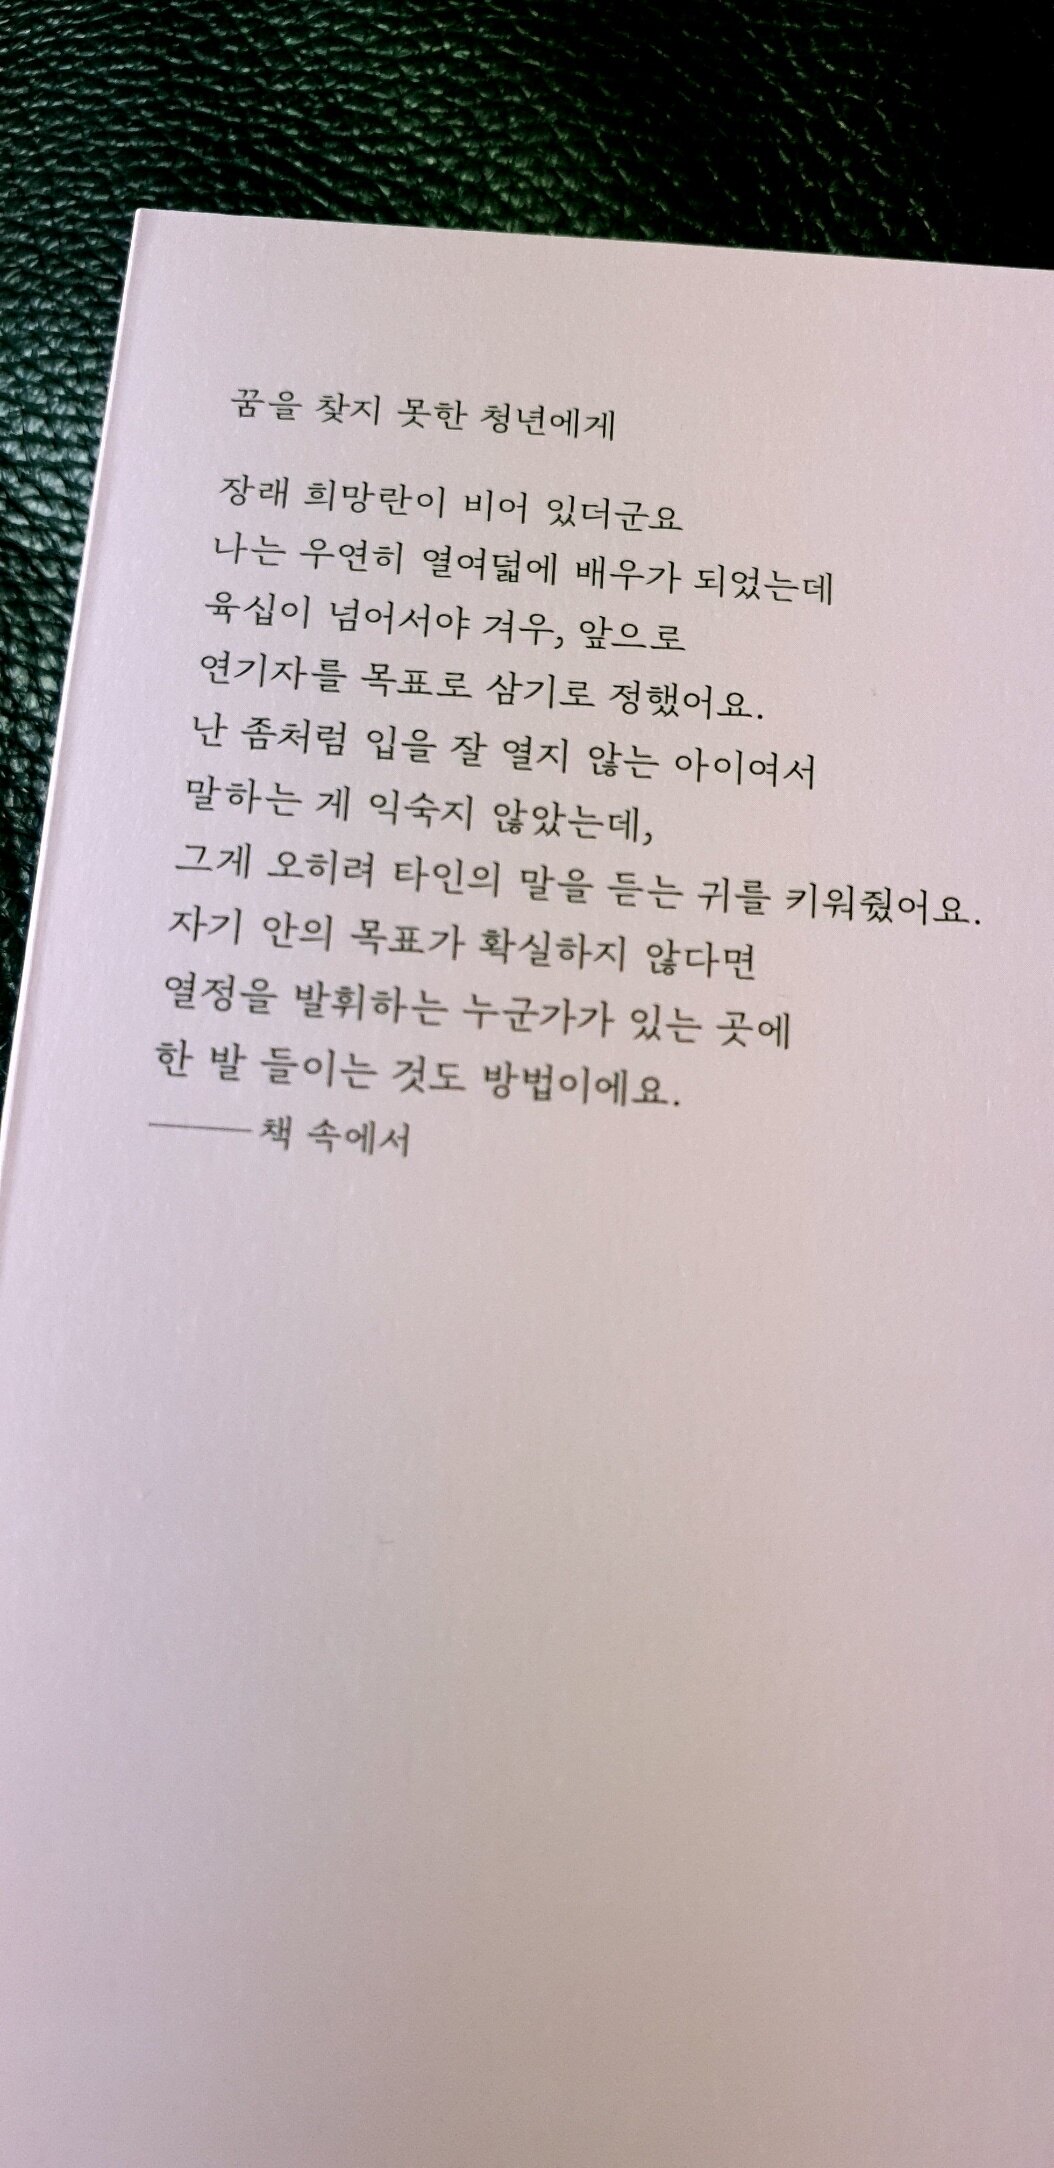 꿈을 찾지 못한 청년에게
장래 희망란이 비어 있더군요
나는 우연히 열여덟에 배우가 되었는데
육십이 넘어서야 겨우, 앞으로
연기자를 목표로 삼기로 정했어요.
난 좀처럼 입을 잘 열지 않는 아이여서
말하는 게 익숙지 않았는데,
그게 오히려 타인의 말을 듣는 귀를 키워줬어요.
자기 안의 목표가 확실하지 않다면
열정을 발휘하는 누군가가 있는 곳에
한 발 들이는 것도 방법이에요.
——책 속에서